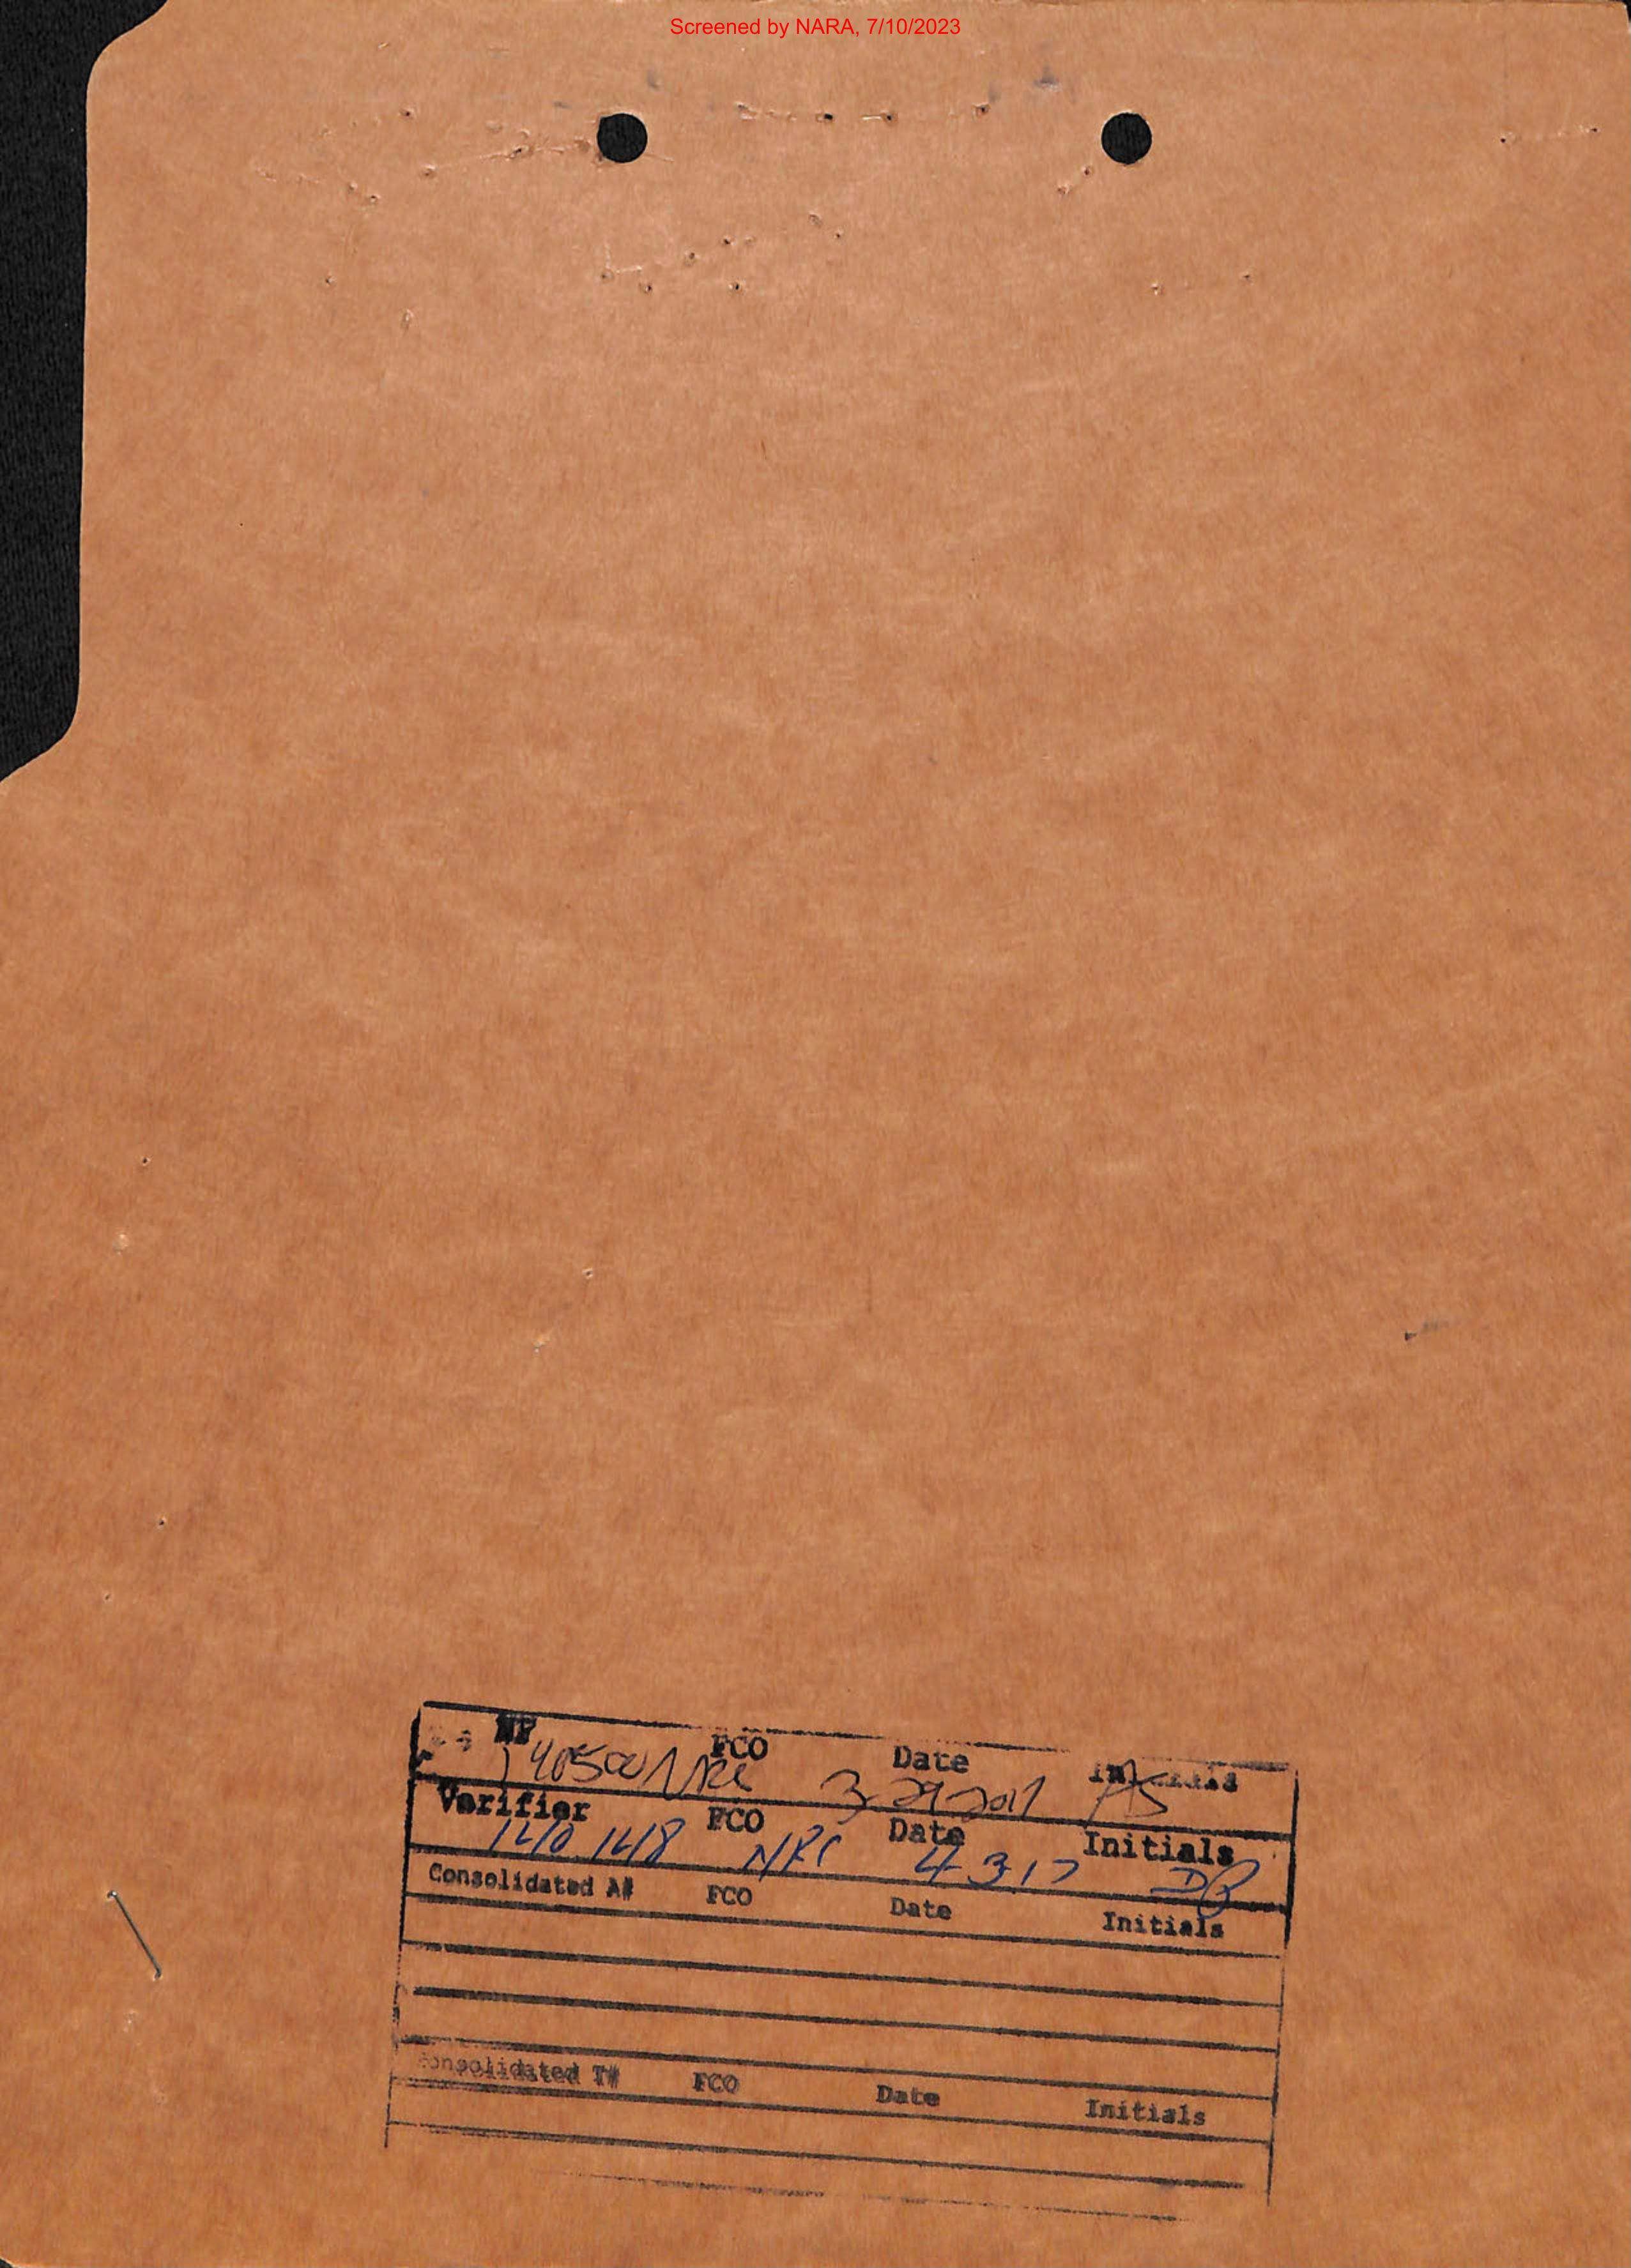 Screened by NARA, 7/10/2023
WF FCO Date Initials
NRC 3-29-2017 AS
Verifier FCO Date Initials
NRC 4-3-17 DB
Consolidated A# FCO Date Initials
Consolidated T# FCO Date Initials